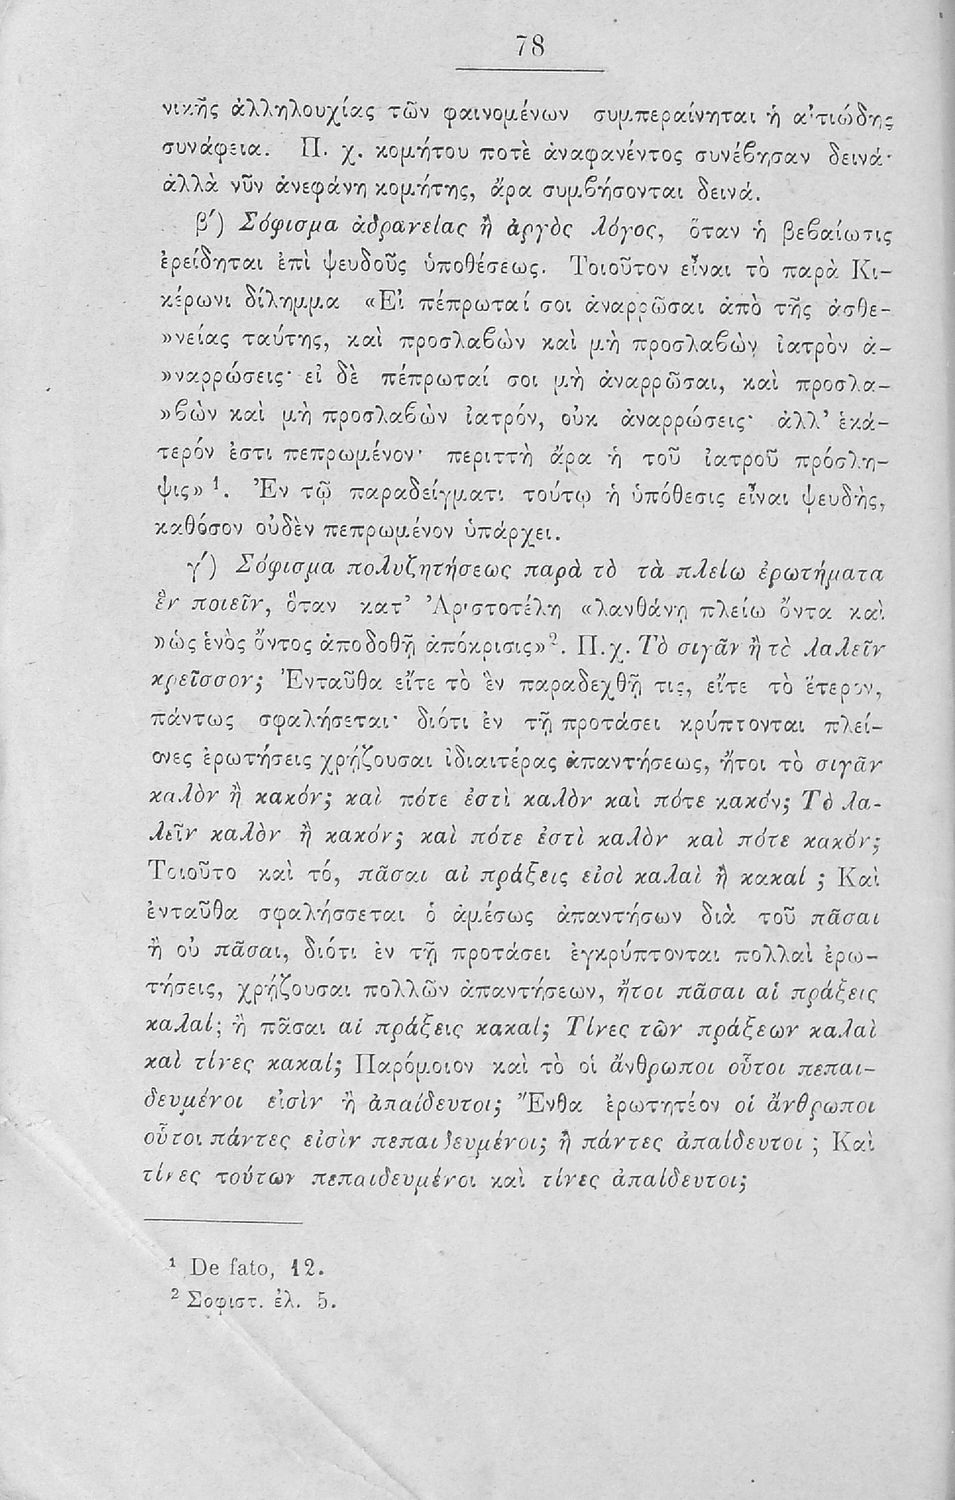 78
νικῆς ἀλληλουχίας τῶν φαινομένων συμπεραίνηται ἡ αἰτιώδης
συνάφεια. Π. χ. κομήτου ποτὲ ἀναφανέντος συνέβησαν δεινά·
ἀλλὰ νῦν ἀνεφάνη κομήτης, ἄρα συμβήσονται δεινά.
β′) Σόφισμα ἀδρανείας ἢ ἀργὸς λόγος, ὅταν ἡ βεβαίωσις
ἐρείδηται ἐπὶ ψευδοῦς ὑποθέσεως. Τοιοῦτον εἶναι τὸ παρὰ Κι-
κέρωνι δίλημμα «Εἰ πέπρωταί σοι ἀναρρῶσαι ἀπὸ τῆς ἀσθε-
»νείας ταύτης, καὶ προσλαβὼν καὶ μὴ προσλαβὼν ἰατρὸν ἀ-
»ναρρώσεις· εἰ δὲ πέπρωταί σοι μὴ ἀναρρῶσαι, καὶ προσλα-
»βὼν καὶ μὴ προσλαβὼν ἰατρόν, οὐκ ἀναρρώσεις· ἀλλ' ἑκά-
τερόν ἐστι πεπρωμένον· περιττὴ ἄρα ἡ τοῦ ἰατροῦ πρόσλη-
ψις» ¹. Ἐν τῷ παραδείγματι τούτῳ ἡ ὑπόθεσις εἶναι ψευδὴς,
καθόσον οὐδὲν πεπρωμένον ὑπάρχει.
γ′) Σόφισμα πολυζητήσεως παρὰ τὸ τὰ πλείω ἐρωτήματα
ἓν ποιεῖν, ὅταν κατ' Ἀριστοτέλη «λανθάνῃ πλείω ὄντα καὶ
»ὡς ἑνὸς ὄντος ἀποδοθῇ ἀπόκρισις»². Π.χ. Τὸ σιγᾶν ἢ τὸ λαλεῖν
κρεῖσσον; Ἐνταῦθα εἴτε τὸ ἓν παραδεχθῇ τις, εἴτε τὸ ἕτερον,
πάντως σφαλήσεται· διότι ἐν τῇ προτάσει κρύπτονται πλεί-
ονες ἐρωτήσεις χρῄζουσαι ἰδιαιτέρας ἀπαντήσεως, ἤτοι τὸ σιγᾶν
καλὸν ἢ κακόν; καὶ πότε ἐστὶ καλὸν καὶ πότε κακόν; Τὸ λα-
λεῖν καλὸν ἢ κακόν; καὶ πότε ἐστὶ καλὸν καὶ πότε κακόν;
Τοιοῦτο καὶ τό, πᾶσαι αἱ πράξεις εἰσὶ καλαὶ ἢ κακαί ; Καὶ
ἐνταῦθα σφαλήσσεται ὁ ἀμέσως ἀπαντήσων διὰ τοῦ πᾶσαι
ἢ οὐ πᾶσαι, διότι ἐν τῇ προτάσει ἐγκρύπτονται πολλαὶ ἐρω-
τήσεις, χρῄζουσαι πολλῶν ἀπαντήσεων, ἤτοι πᾶσαι αἱ πράξεις
καλαί; ἢ πᾶσαι αἱ πράξεις κακαί; Τίνες τῶν πράξεων καλαὶ
καὶ τίνες κακαί; Παρόμοιον καὶ τὸ οἱ ἄνθρωποι οὗτοι πεπαι-
δευμένοι εἰσὶν ἢ ἀπαίδευτοι; Ἔνθα ἐρωτητέον οἱ ἄνθρωποι
οὗτοι πάντες εἰσὶν πεπαιδευμένοι; ἢ πάντες ἀπαίδευτοι ; Καὶ
τίνες τούτων πεπαιδευμένοι καὶ τίνες ἀπαίδευτοι;
¹ De fato, 12.
² Σοφιστ. ἐλ. 5.